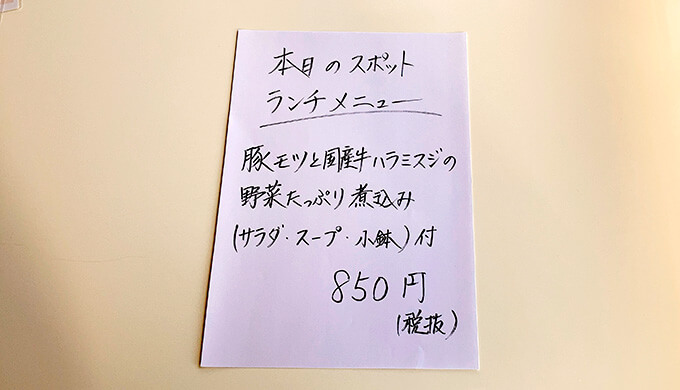 本日のスポット
ランチメニュー
豚モツと国産牛ハラミスジの
野菜たっぷり煮込み
(サラダ・スープ・小鉢)付
850円
(税抜)